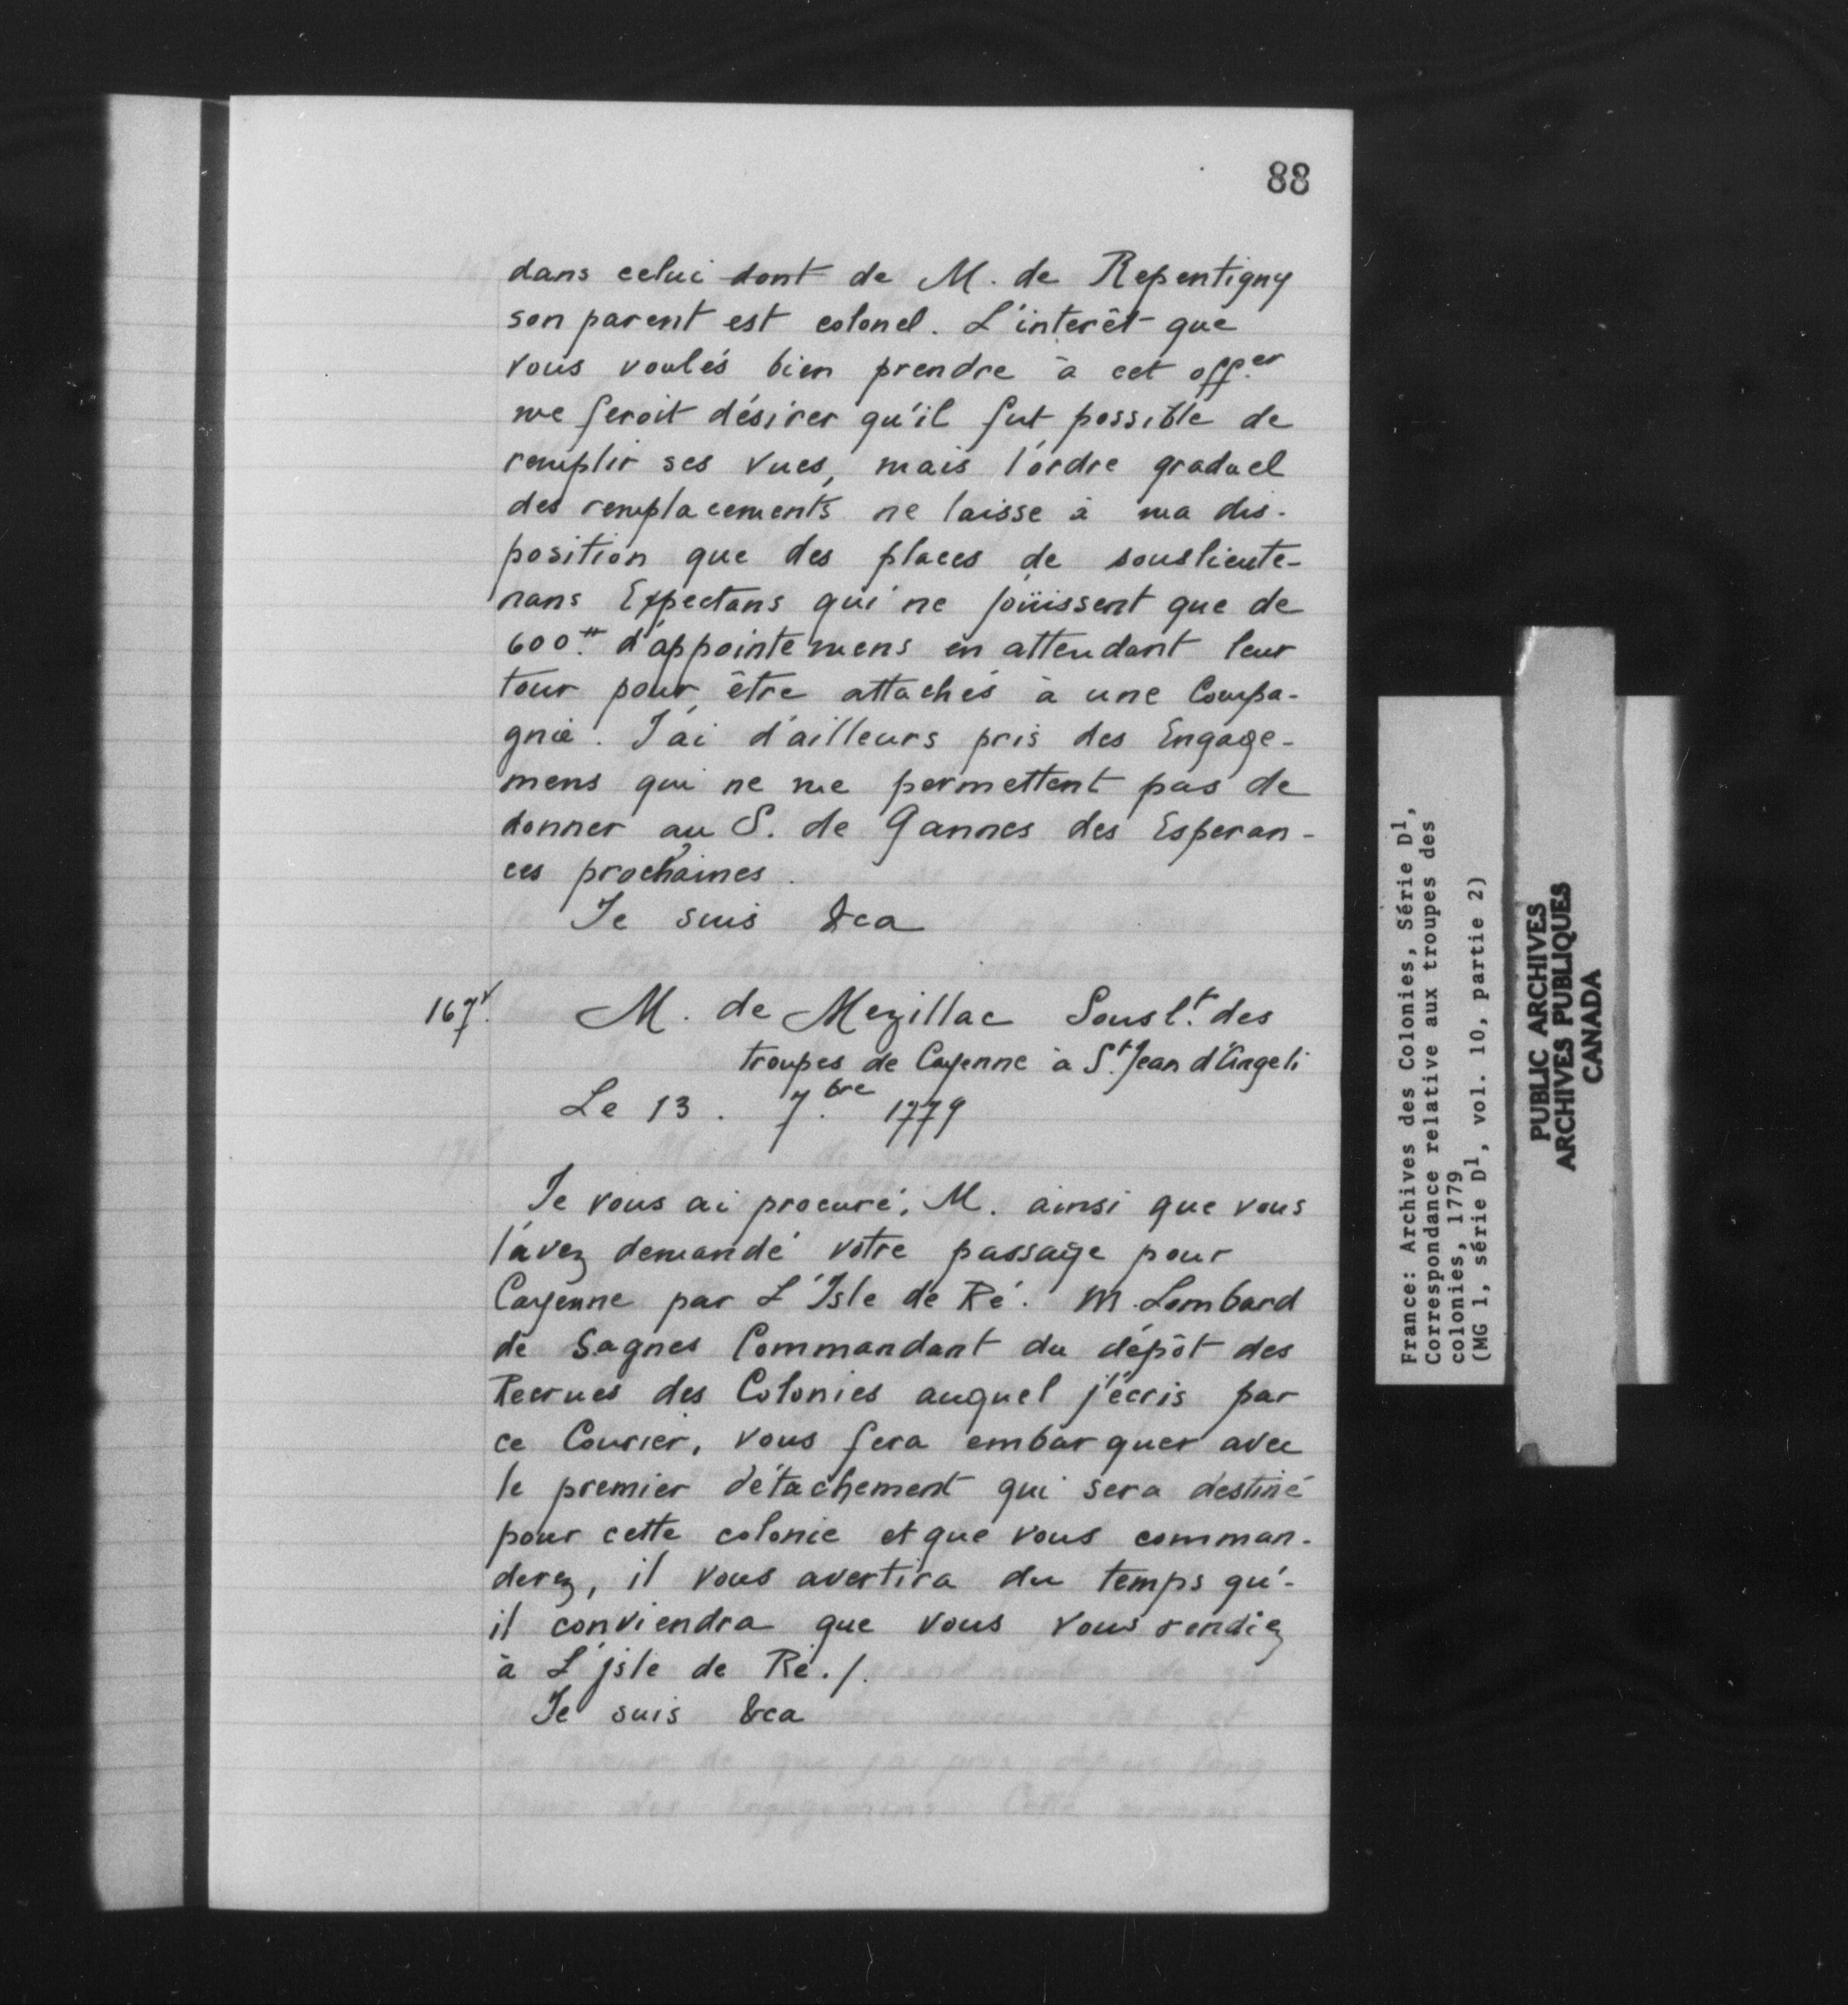 88
dans celui dont de M. de Repentigny
son parent est colonel. L'interêt que
vous voulés bien prendre à cet off.er
me feroit désirer qu'il fut possible de
remplir ses vues, mais l'ordre graduel
des remplacements ne laisse à ma dis-
position que des places de souslieute-
nans Expectans qui ne joüissent que de
600.tt d'appointemens en attendant leur
tour pour être attachés à une Compa-
gnie. J'ai d'ailleurs pris des Engage-
mens qui ne me permettent pas de
donner au S. de Gannes des Esperan-
ces prochaines.
Je suis &ca
167.v
M. de Mezillac Sousl.t des
troupes de Cayenne à S.t Jean d'Angeli
Le 13. 7.bre 1779
Je vous ai procuré, M. ainsi que vous
l'avez demandé votre passage pour
Cayenne par L'Isle de Ré. M. Lombard
de Sagnes Commandant du dépôt des
Recrues des Colonies auquel j'écris par
ce Courier, vous fera embarquer avec
le premier détachement qui sera destiné
pour cette colonie et que vous comman-
derez, il vous avertira du temps qu'-
il conviendra que vous vous rendiez
à L'jsle de Ré./.
Je suis &ca
France: Archives des Colonies, Série D1,
Correspondance relative aux troupes des
colonies, 1779
(MG 1, série D1, vol. 10, partie 2)
PUBLIC ARCHIVES
ARCHIVES PUBLIQUES
CANADA